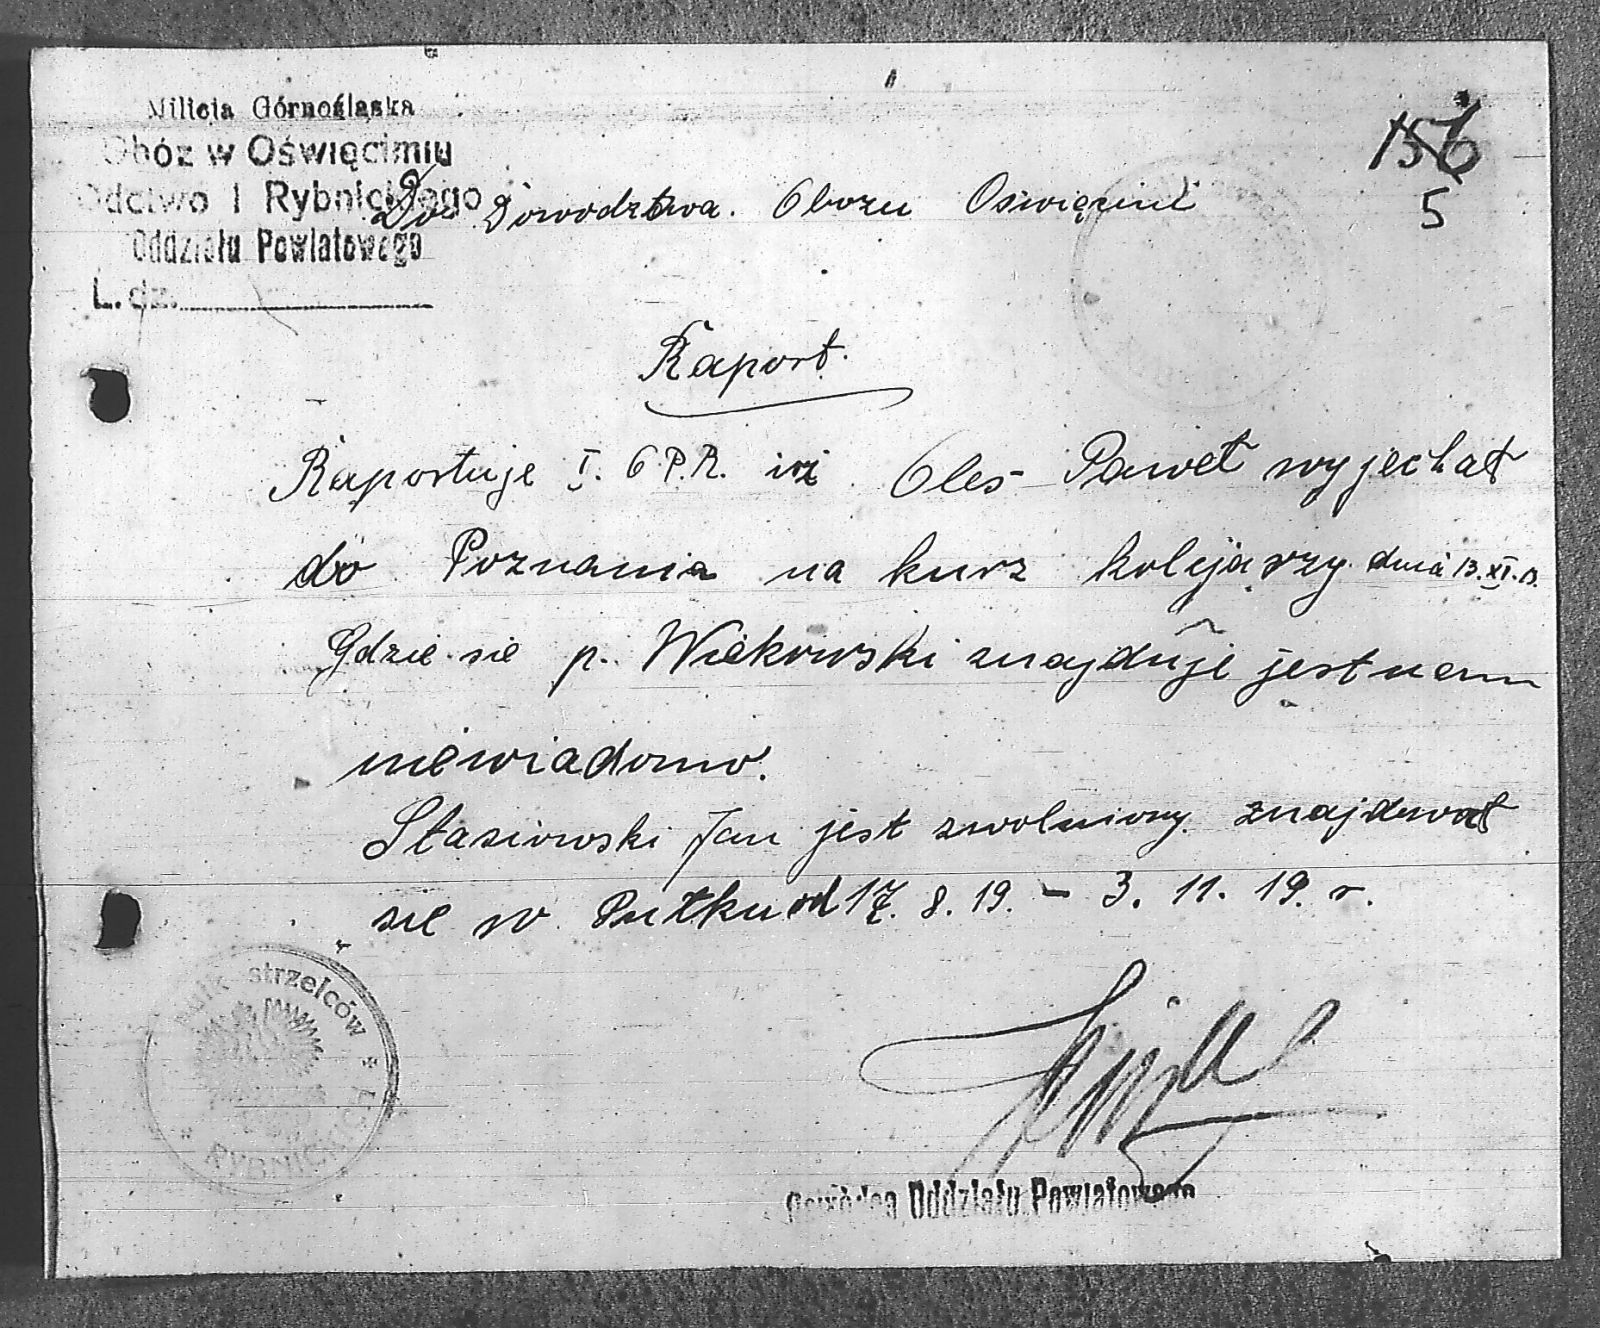 Milicja Górnośląska
Obóz w Oświęcimiu
Odctwo I Rybnickiego
Oddziału Powiatowego
L. dz.
156
5
Do Dowodztwa. Obozu Oświęcim
Raport.
Raportuje I. G.P.R. iż Oleś Paweł wyjechał
do Poznania na kurz kolejarzy dnia 13. XI. 19.
Gdzie się p. Wiekowski znajduje jest nam
niewiadomo.
Stasiowski Jan jest zwolniony. znajdował
się w Pułku od 17. 8. 19. – 3. 11. 19. r.
pułk strzelców
RYBNICKI
Dowódca Oddziału Powiatowego